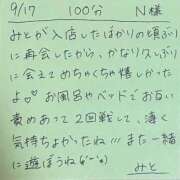 9/17 100分 N様
みとが入店したばかりの頃ぶり
に再会したから、かなり久しぶり
に会えてめちゃくちゃ嬉しかった
よ♡ お風呂やベッドでお互い
責めあって2回戦して、凄く
気持ちよかったね!!! また一緒
に遊ぼうね(*ˊᵕˋ*)
みと